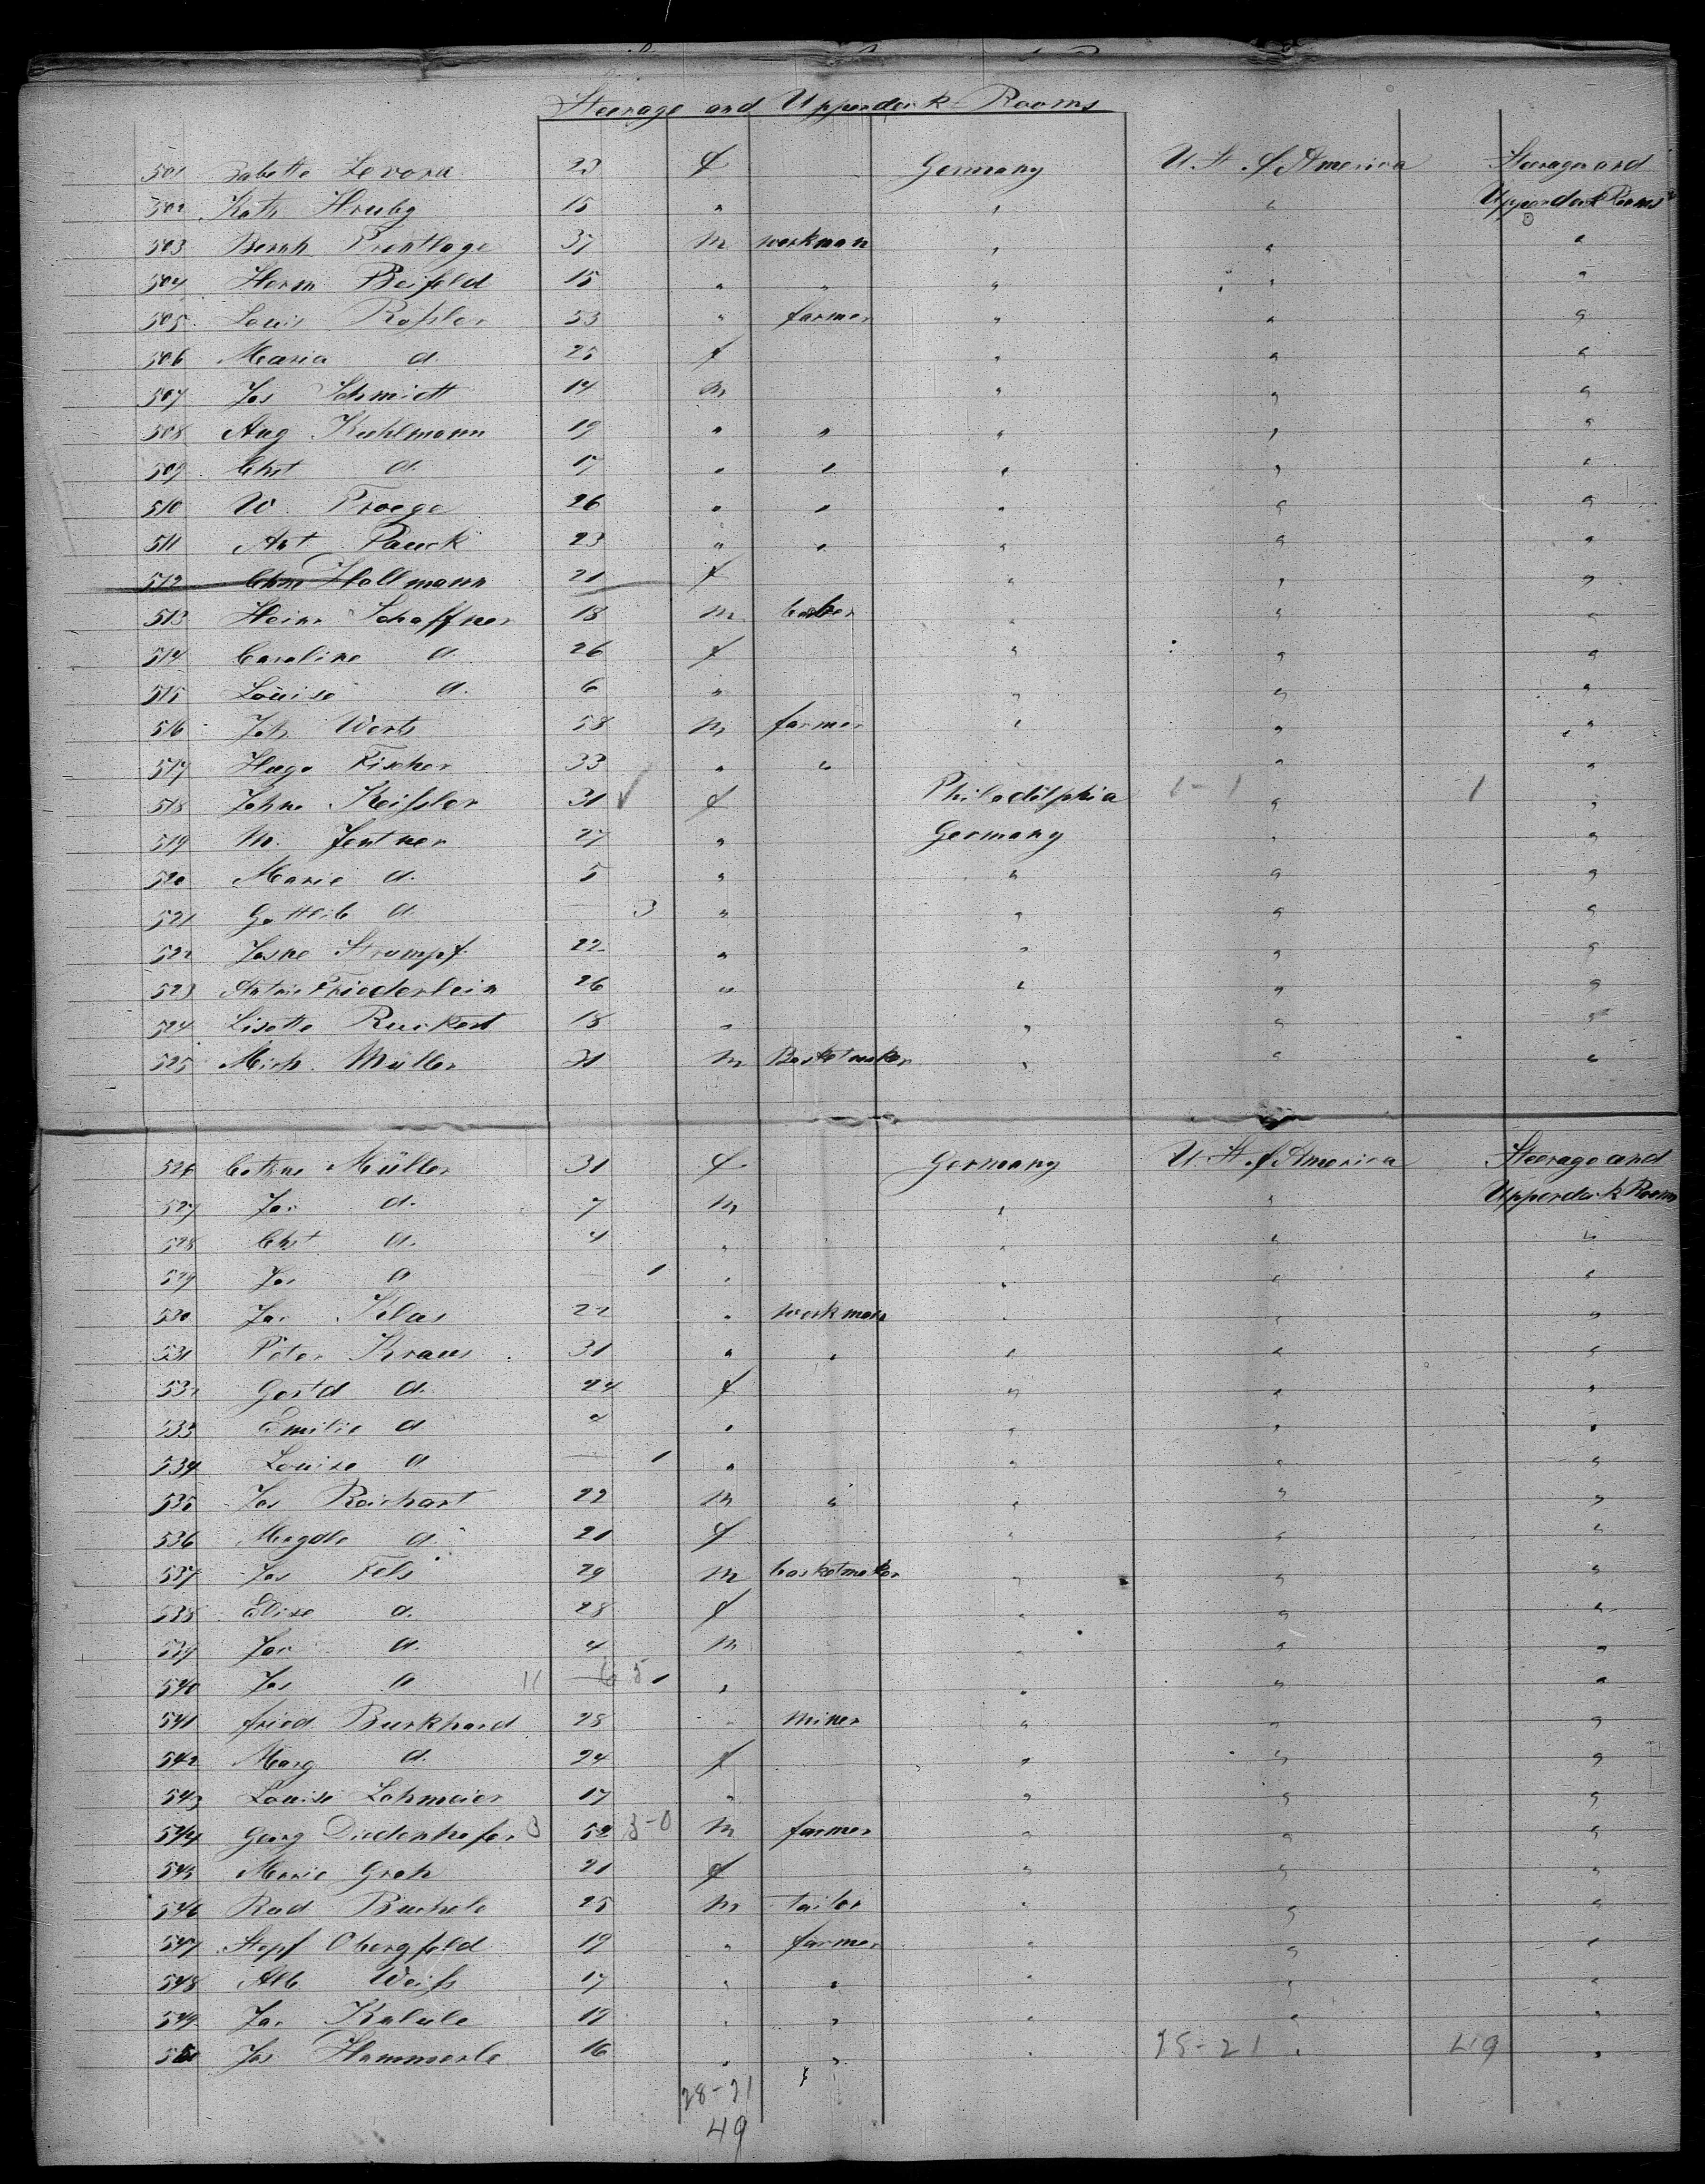 Steerage and Upperdeck Rooms
501 Babette Levora 23 f Germany U. St. of America Steerage and
502 Kath Hruby 15 " " " Upperdeck Rooms
503 Bernh Prentlage 37 m workman " " "
504 Herm Beifeld 15 " " " " "
505 Louis Roßler 53 " farmer " " "
506 Maria d. 25 f " " "
507 Jos Schmidt 14 m " " "
508 Aug Kuhlmann 19 " " " " "
509 Chst d. 17 " " " " "
510 W. Troege 26 " " " " "
511 Ant. Pauck 23 " " " " "
512 Hollmann 21 f " " "
513 Heinr Schaffner 18 m " " "
514 Caroline d. 26 f " " "
515 Louise d. 6 " " " "
516 Joh Werts 58 m farmer " " "
517 Hugo Fischer 33 " " " " "
518 Johne Keißler 31 ✓ f Philadelphia 1-1 " 1 "
519 M. Jentner 27 " Germany " "
520 Marie d. 5 " " " "
521 Gottlib d. — 3 " " " "
522 Strumpf 22 " " " "
523 Friederlein 26 " " " "
524 Lisette Ruckert 18 " " " "
525 Mich. Müller 31 m Basketmaker " " "
526 Cathne Müller 31 f Germany U. St. of America Steerage and
527 Jos d. 7 m " " Upperdeck Rooms
528 Chst d. 4 " " " "
529 Jos d — 1 " " " "
530 Jos Klas 22 " workman " " "
531 Peter Kraus 31 " " " " "
532 Gertd d. 24 f " " "
533 Emilie d 4 " " " "
534 Louise d — 1 " " " "
535 Jos Reichart 22 m " " " "
536 Magdle d. 21 f " " "
537 Jos Fels 29 m basketmaker " " "
538 Elise d. 28 f " " "
539 Jos d. 4 m " " "
540 Jos d 11 — 6 5 1 " " " "
541 fried Burkhard 28 " miner " " "
542 Marg d. 24 f " " "
543 Louise Lohmeier 17 " " " "
544 Georg Diedenhofer 3 52 3-0 m farmer " " "
545 Marie Groh 21 f " " "
546 Rud Buchele 25 m tailor " " "
547 Stepf Obergfeld 19 " farmer " " "
548 Alb Weiß 17 " " " " "
549 Jos Kalule 19 " " " " "
550 Jos Hammerle 16 " " " 28-21 " 49 "
28-21
49